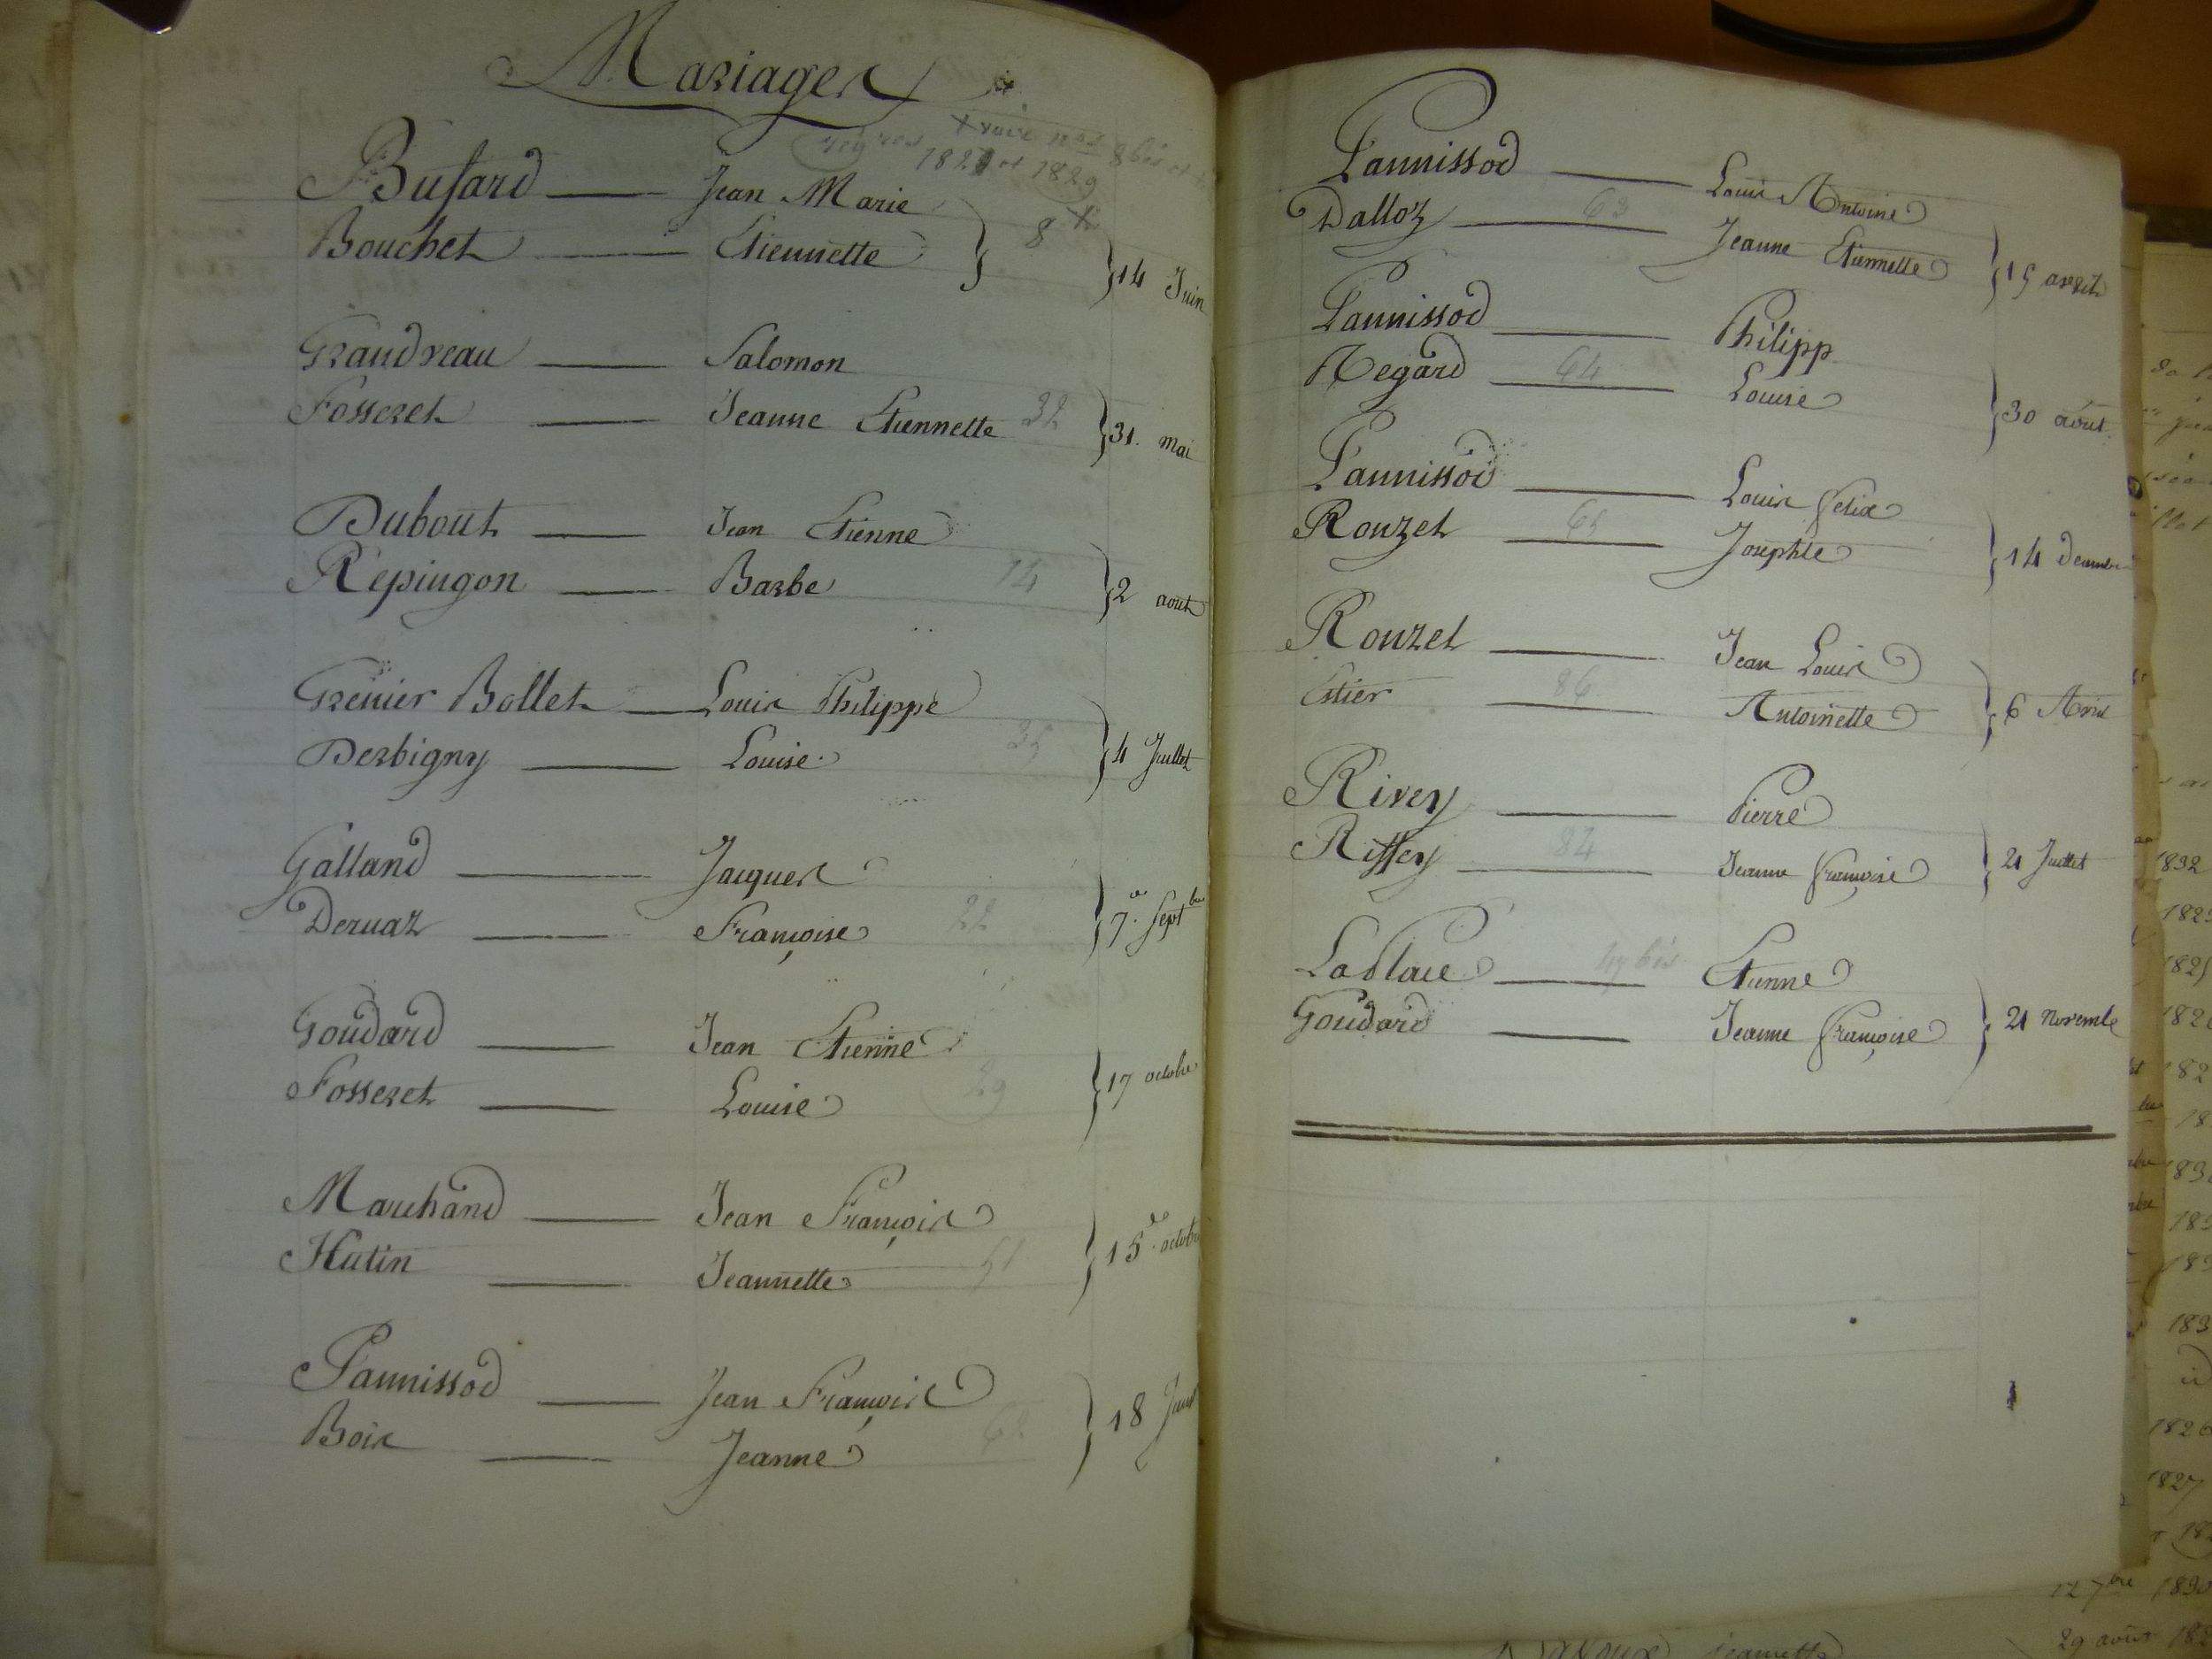 Mariages
+ voir nos 8 bis et
1821 et 1829
Bufard — Jean Marie
Bouchet — Etiennette } 8 + } 14 Juin
Grandreau — Salomon
Fosseret — Jeanne Etiennette 32 } 31. mai
Dubout — Jean Etienne
Répingon — Barbe 14 } 2 aout
Grenier Bollet — Louis Philippe
Derbigny — Louise 35 } 4 Juillet
Galland — Jacques
Deruaz — Françoise 22 } 7. Septbre
Goudard — Jean Etienne
Fosseret — Louise 29 } 17 octobre
Marchand — Jean François
Hutin — Jeannette 51 } 15 octobre
Pannissod — Jean François
Bois — Jeanne } 18
Pannissod — Louis Antoine
Dalloz — 63 Jeanne Etiennette } 15 avril
Pannissod — Philipp
Regard — 64 Louise } 30 aout.
Pannissod — Louis felix
Rouzet — 65 Josephte } 14 Decembre
Rouzet — Jean Louis
Estier — 86 Antoinette } 6 Avril
Rivey — Pierre
Riffey — 84 Jeanne françoise } 21 Juillet
LaPlace — 47 bis Etienne
Goudard — Jeanne françoise } 21 Novembre
1832
1826
1827
12 7bre 1830
29 août